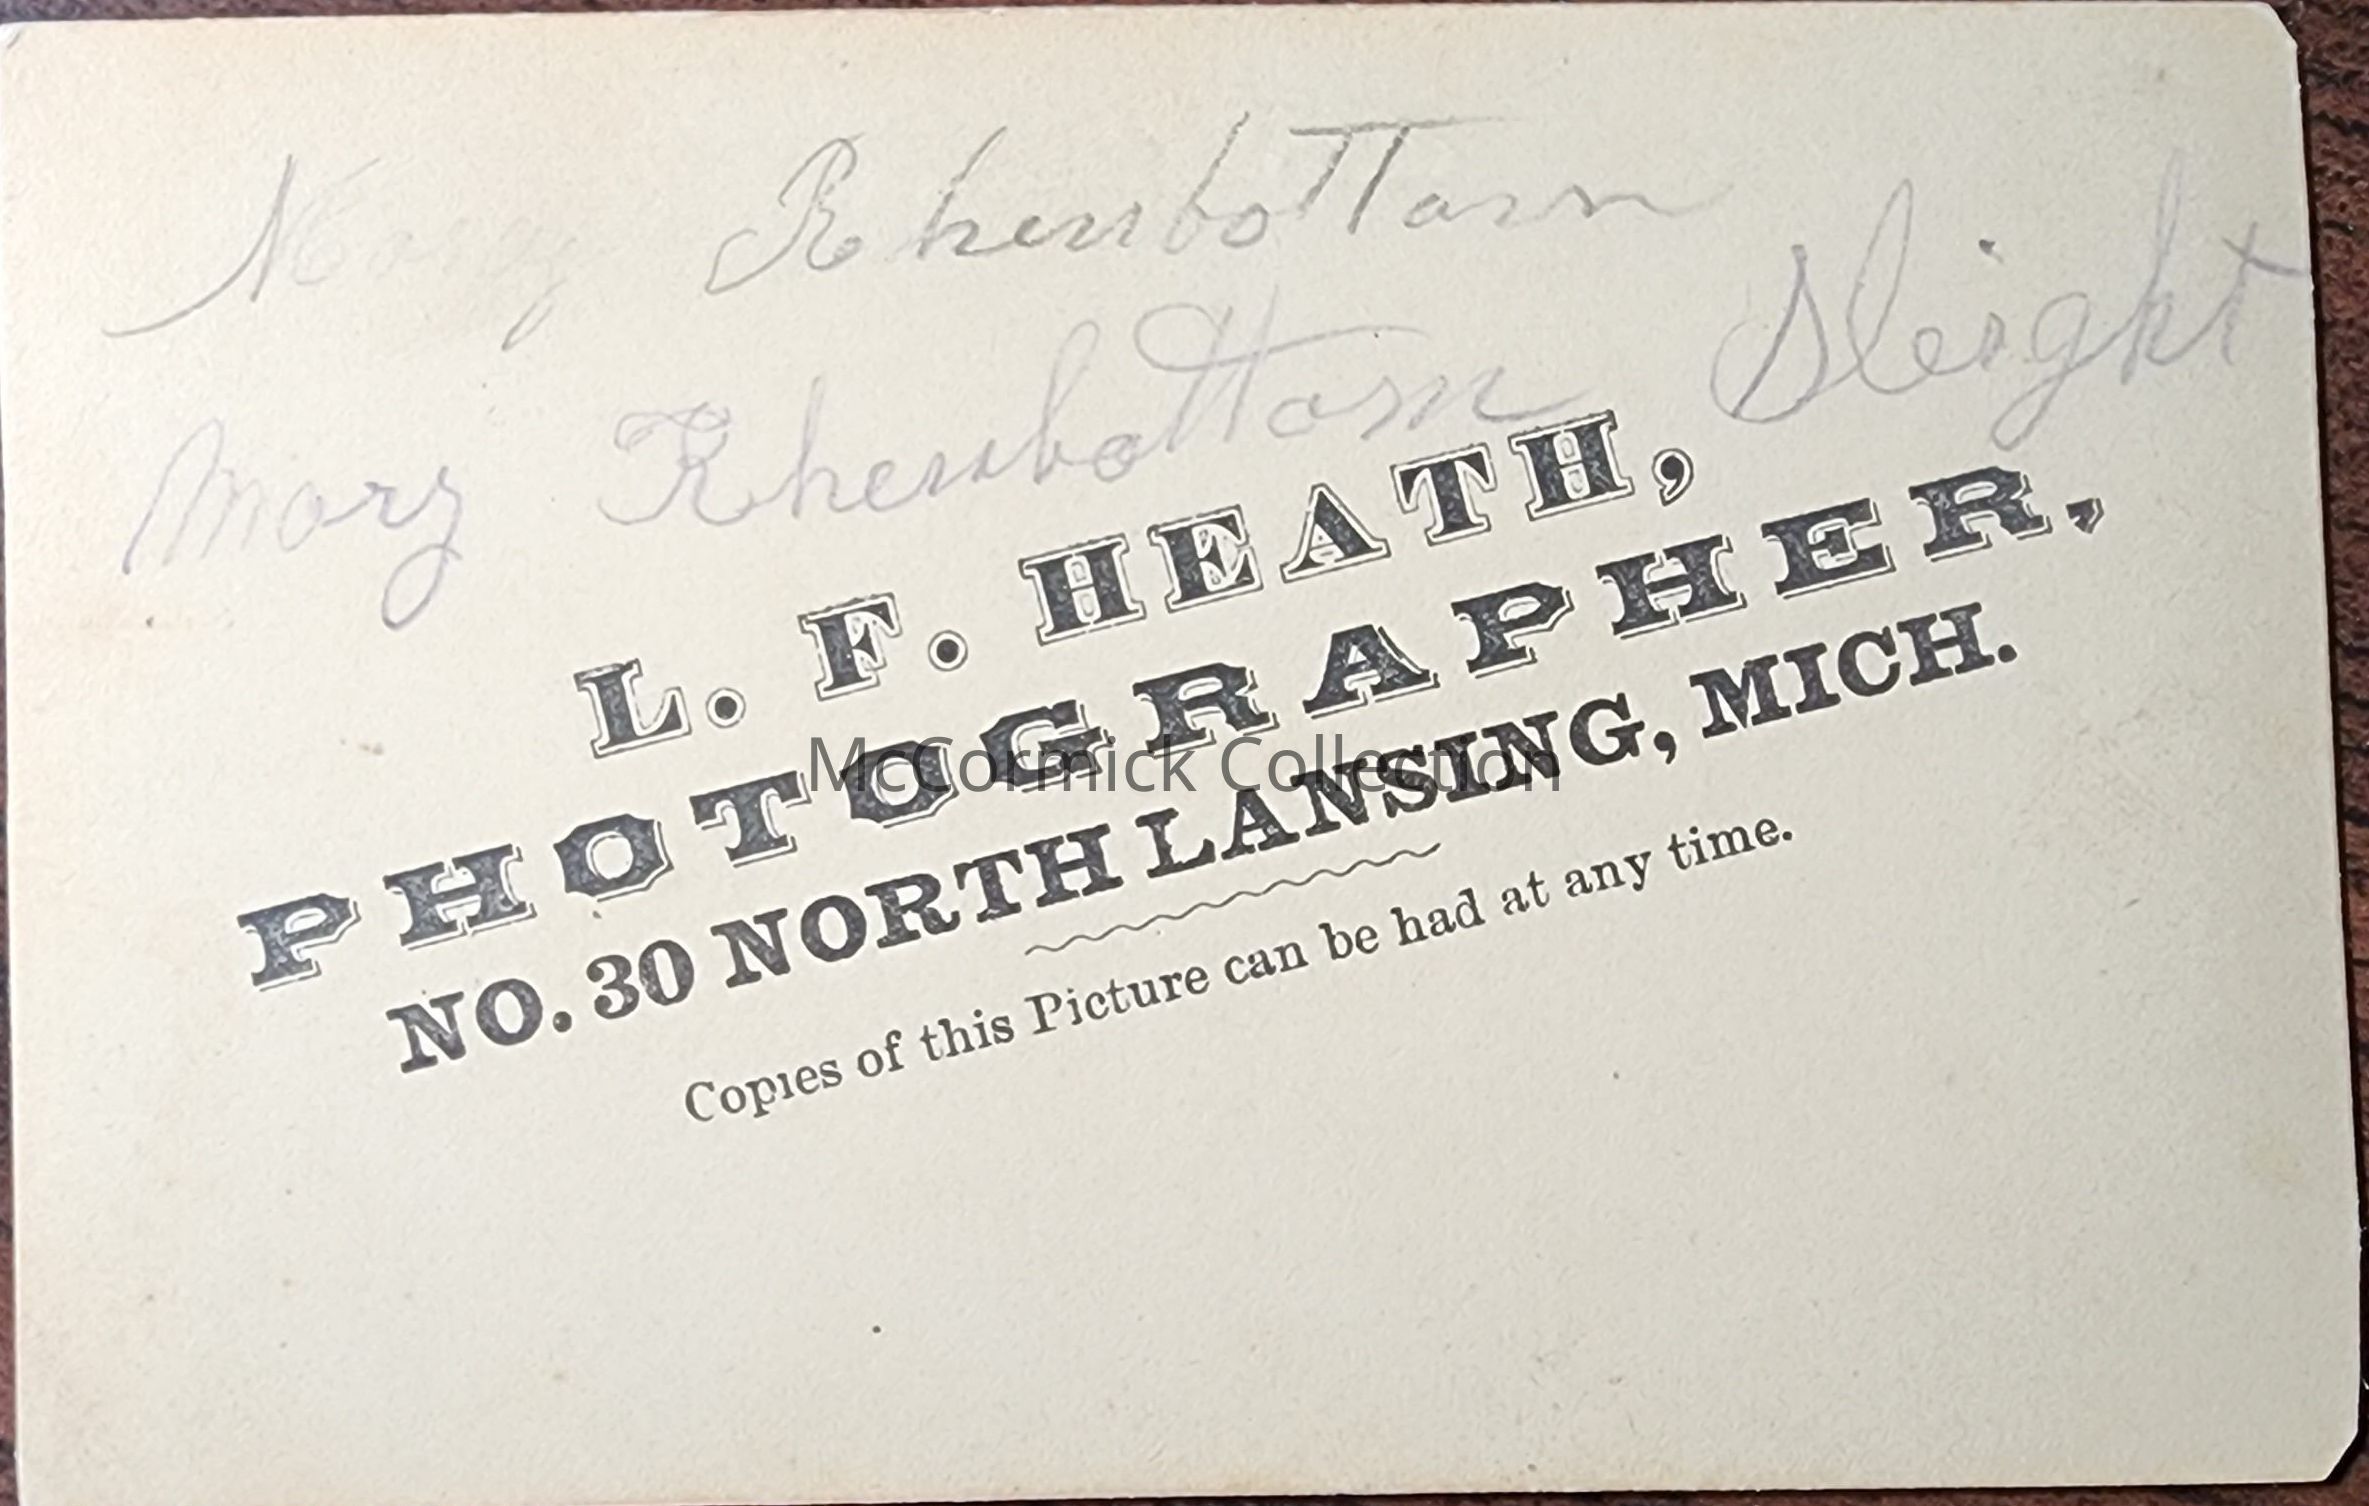 Mary Rhensbottom
Mary Rhensbottom Sleight
L. F. HEATH,
PHOTOGRAPHER,
NO. 30 NORTH LANSING, MICH.
Copies of this Picture can be had at any time.
McCormick Collection